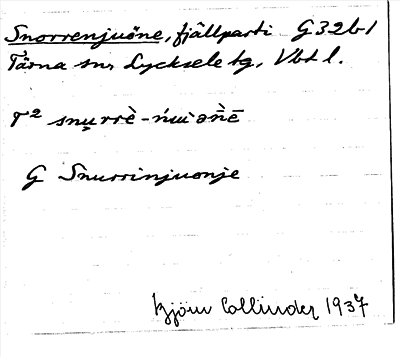 Snorrenjuöne, fjällparti G32b1
Tärna sn, Lycksele lg, Vbtl.
T² snu̬rrè-ńuiə̀ñē
G Snurrinjuonje
Björn Collinder 1937